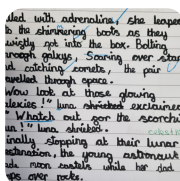 led with adrenaline, she leaped
to the shimmering boots as they
wistly got into the box. Bolting
rough galxys, Soaring over star
d catching comets, the pair
avelled through space.
Wow look at those glowing
lexies!" luna shrieked exclaimed
Whatch out gor the scorchi
un!" luna shrieked.
celest
inally stopping at their lunar
estination, the young astronaut
ade moon castels while her dad
ps over rocks.